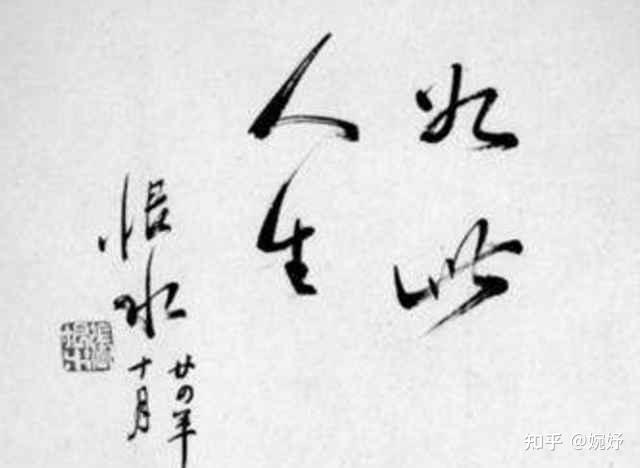 如此
人生
恨水
廿四年
十月
知乎 @婉妤